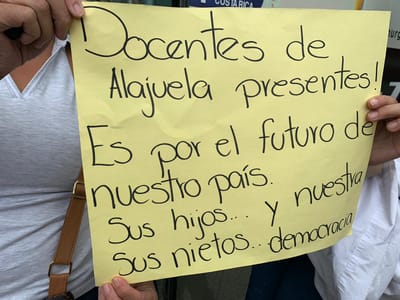 COSTA RICA
Docentes de
Alajuela presentes!
Es por el futuro de
nuestro país.
sus hijos... y nuestra
sus nietos... democracia.